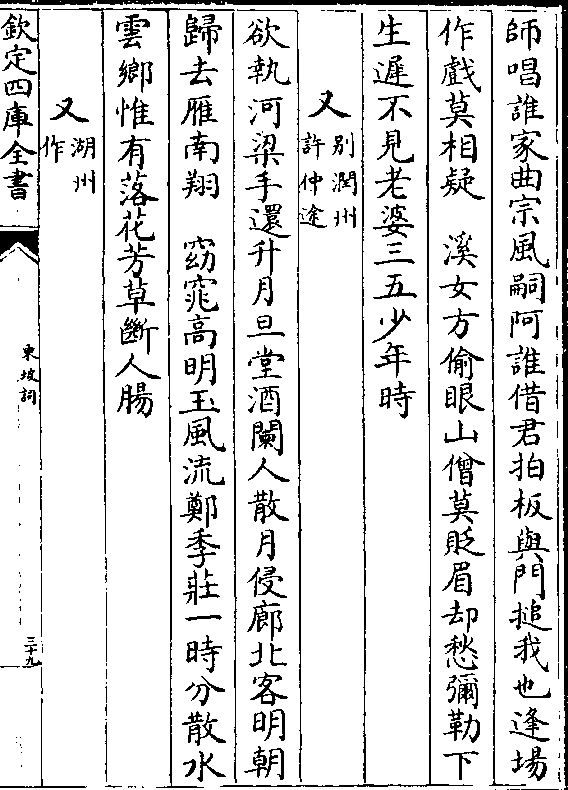 師唱誰家曲宗風嗣阿誰借君拍板與門搥我也逢場
作戲莫相疑　溪女方偷眼山僧莫貶眉却愁彌勒下
生遲不見老婆三五少年時
又 别潤州許仲途
欲執河梁手還升月旦堂酒闌人散月侵廊北客明朝
歸去雁南翔　窈窕高明玉風流鄭季莊一時分散水
雲鄉惟有落花芳草斷人腸
又 湖州作
欽定四庫全書
東坡詞
三十九